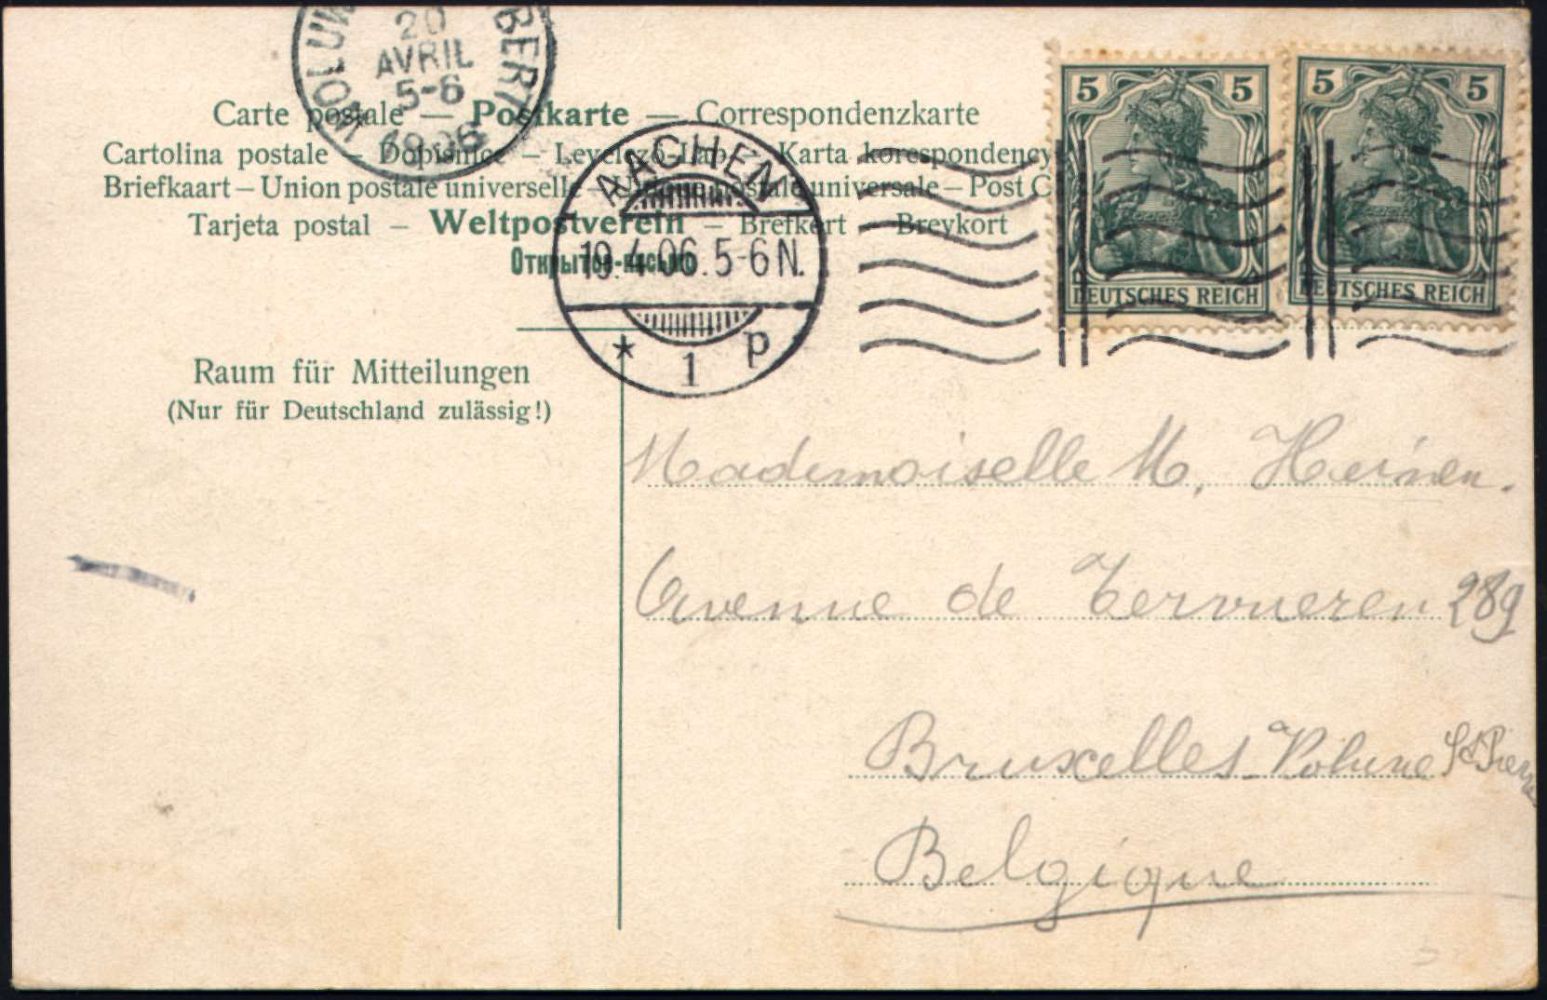 WOLUW BERT
20
AVRIL
5-6
1906
Carte postale — Postkarte — Correspondenzkarte
Cartolina postale – Dopisnice – Levelező-Lap – Karta korespondency
Briefkaart – Union postale universelle – postale universale – Post C
Tarjeta postal – Weltpostverein – Brefkort – Brevkort
Открытое письмо
AACHEN
19.4.06.5-6N.
* 1 p
5 5
DEUTSCHES REICH
5 5
DEUTSCHES REICH
Raum für Mitteilungen
(Nur für Deutschland zulässig!)
Mademoiselle M. Heinen.
Avenue de Tervueren 289
Bruxelles Woluwe St Pierre
Belgique